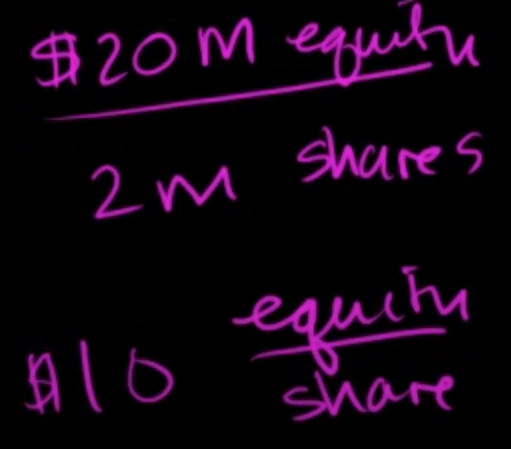 $20 M equity
2 M shares
equity
$10
share